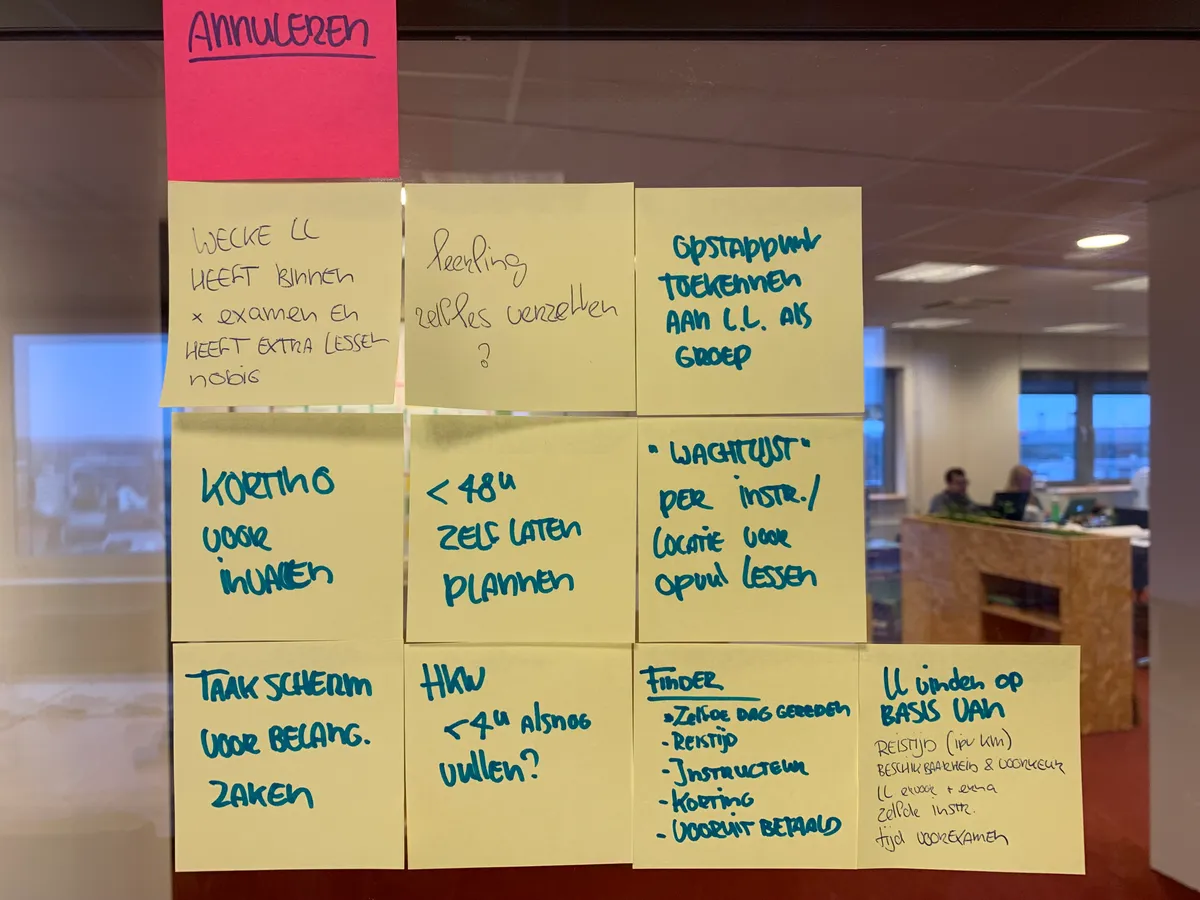 ANNULEREN
WELKE LL
HEEFT BINNEN
x examen EN
HEEFT EXTRA LESSEN
nodig
leerling
zelfles verzetten
?
OPSTAPPUNT
TOEKENNEN
AAN L.L. ALS
GROEP
KORTING
VOOR
INVALLEN
< 48u
ZELF LATEN
PLANNEN
"WACHTLIJST"
PER INSTR./
LOCATIE VOOR
OPVUL LESSEN
TAAKSCHERM
VOOR BELANG.
ZAKEN
HKW
<4u ALSNOG
VULLEN?
FINDER
- ZELFDE DAG GEREDEN
- REISTIJD
- INSTRUCTEUR
- KORTING
- VOORUIT BETAALD
LL vinden op
BASIS VAN
REISTIJD (ipv KM)
BESCHIKBAARHEID & VOORKEUR
LL ervoor + erna
zelfde instr.
tijd VOOR EXAMEN